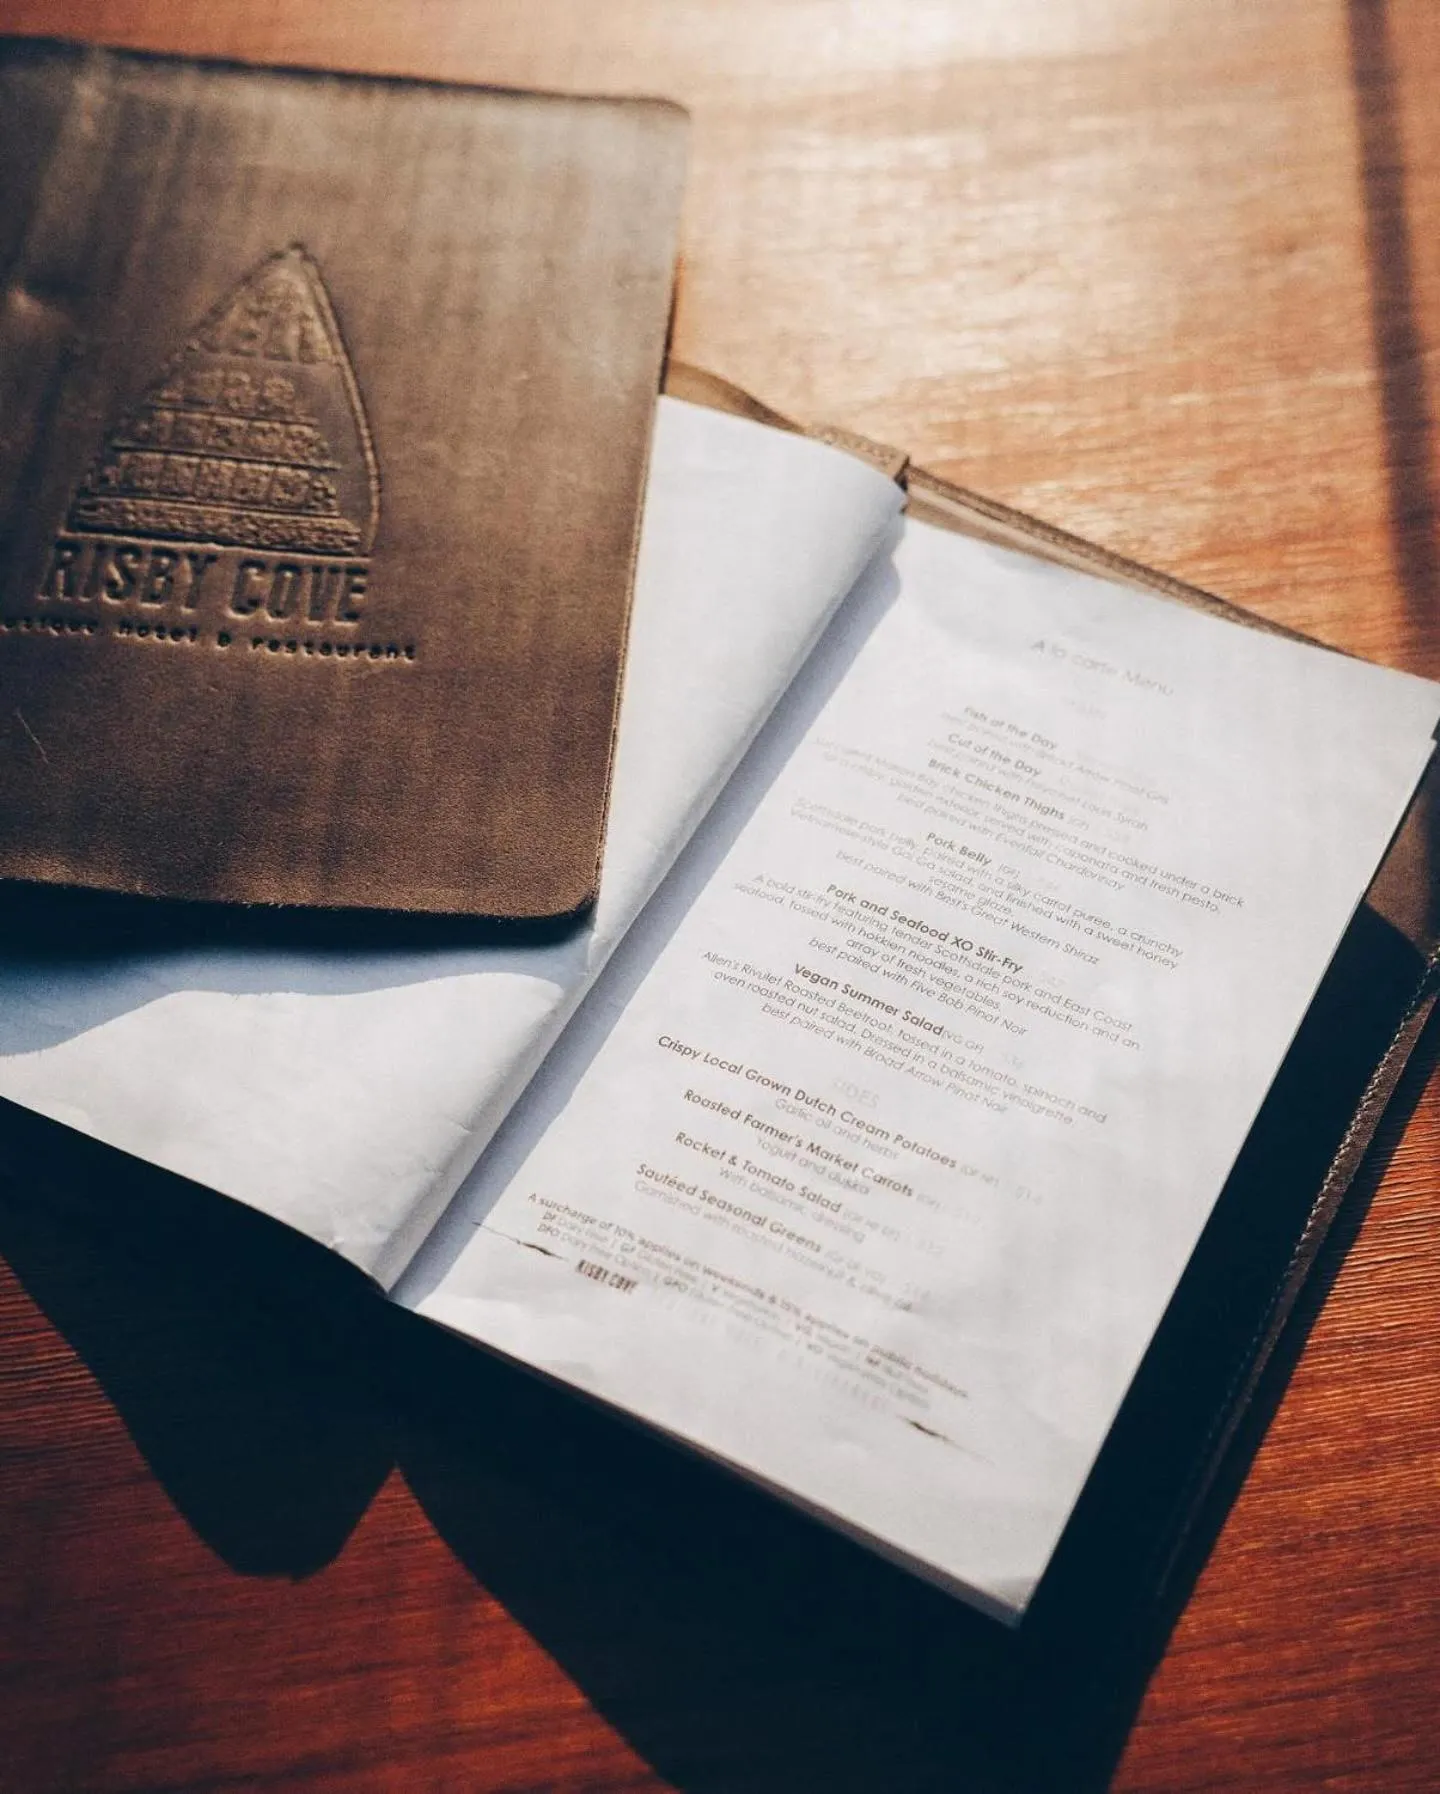 RISBY COVE
hotel & restaurant
A la carte Menu
Fish of the Day
Cut of the Day
Brick Chicken Thighs (GF)
chicken thighs pressed and cooked under a brick
for a crispy, golden exterior, served with caponata and fresh pesto.
best paired with Eventail Chardonnay
Pork Belly (GF)
Scottsdale pork belly. Paired with a silky carrot puree, a crunchy
Vietnamese-style Goi Ga salad, and finished with a sweet honey
sesame glaze.
best paired with Best's Great Western Shiraz
Pork and Seafood XO Stir-Fry
A bold stir-fry featuring tender Scottsdale pork and East Coast
seafood, tossed with hokkien noodles, a rich soy reduction and an
array of fresh vegetables.
best paired with Five Bob Pinot Noir
Vegan Summer Salad (VG GF)
Allen's Rivulet Roasted Beetroot, tossed in a tomato, spinach and
oven roasted nut salad. Dressed in a balsamic vinaigrette.
best paired with Broad Arrow Pinot Noir
SIDES
Crispy Local Grown Dutch Cream Potatoes
Garlic oil and herbs
Roasted Farmer's Market Carrots
Yogurt and dukka
Rocket & Tomato Salad
With balsamic dressing
Sautéed Seasonal Greens
Garnished with roasted hazelnut & olive oil
A surcharge of 10% applies on weekends & 15% applies on public holidays.
DF Dairy Free | GF Gluten Free
DFO Dairy Free Option
RISBY COVE